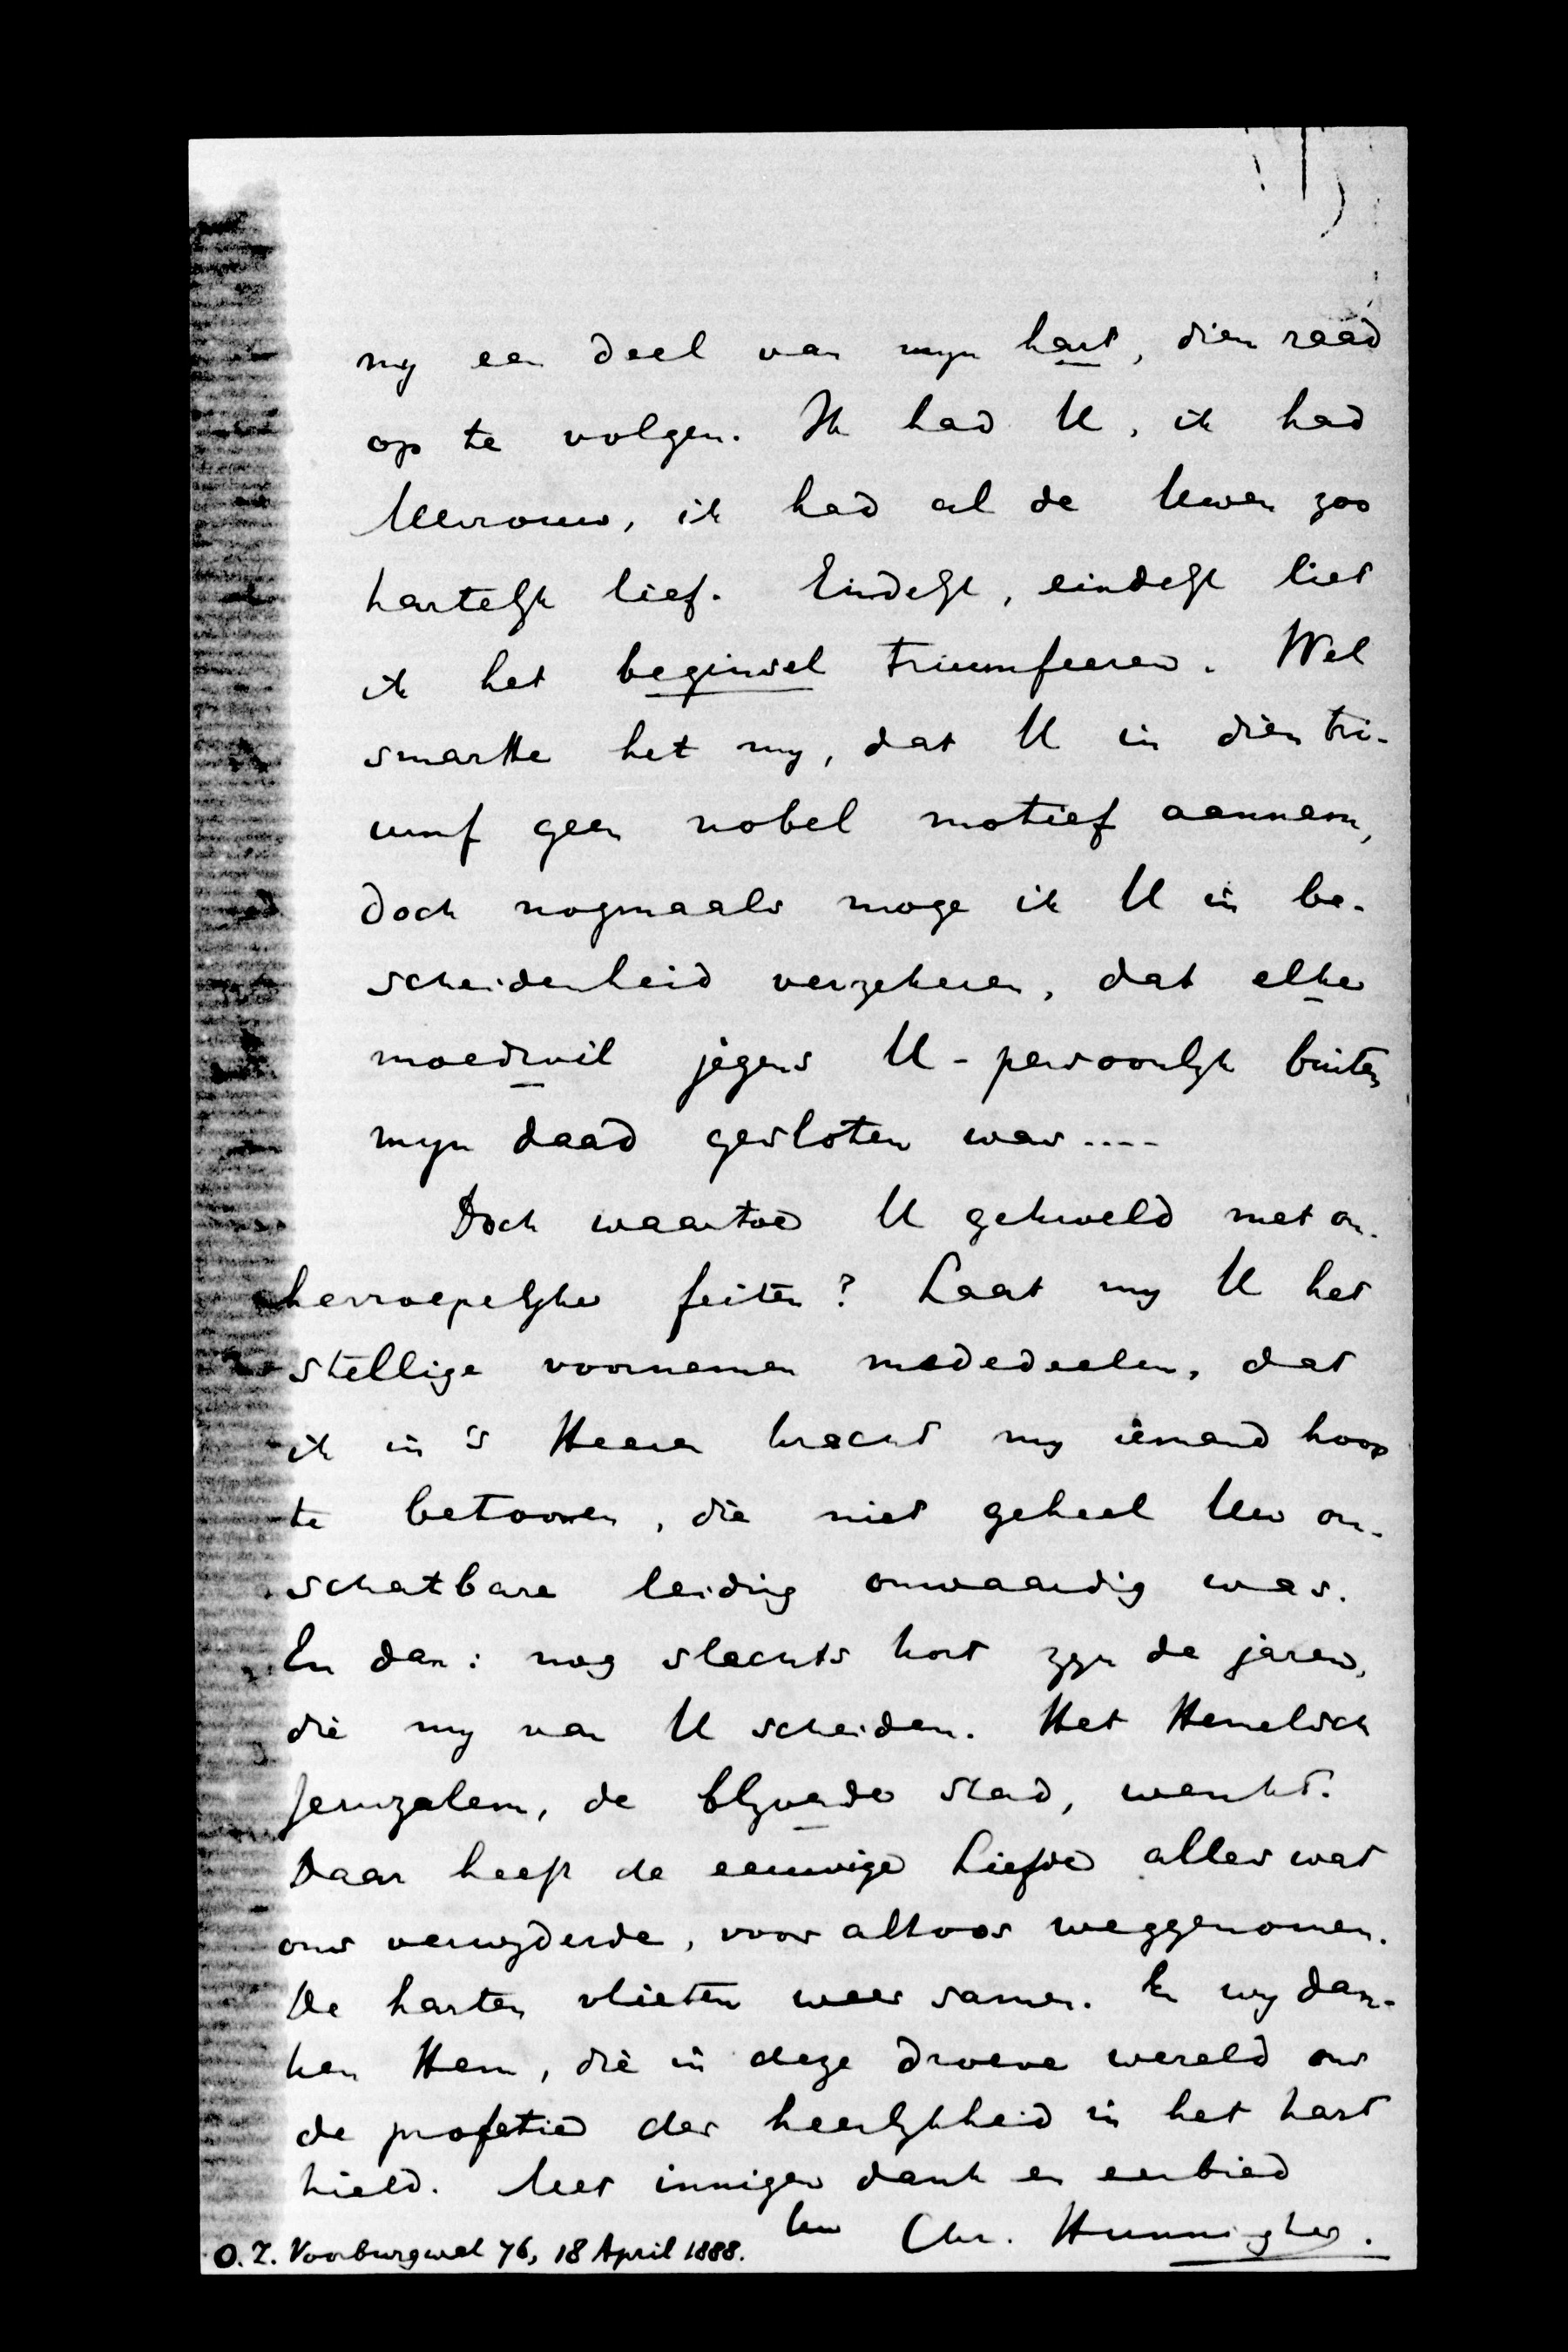 my een deel van myn hart, dien raad
op te volgen. Ik had U, ik had
Mevrouw, ik had al de Uwen zoo
hartelyk lief. Eindelyk, eindelyk liet
ik het beginsel triumfeeren. Wel
smartte het my, dat U in dien tri-
umf geen nobel motief aannam,
doch nogmaals moge ik U in be-
scheidenheid verzekeren, dat elke
moedwil jegens U-persoonlyk buiten
myn daad gesloten was....
Doch waartoe U gekweld met on-
herroepelyke feiten? Laat my U het
stellige voornemen mededeelen, dat
ik in 's Heeren kracht my iemand hoop
te betoonen, die niet geheel Uw on-
schatbare leiding onwaardig was.
En dan: nog slechts kort zyn de jaren,
die my van U scheiden. Het Hemelsch
Jeruzalem, de blyvende stad, wenkt.
Daar heeft de eeuwige Liefde alles wat
ons verwyderde, voor altoos weggenomen.
De harten vlieten weer samen. En wy dan-
ken Hem, die in deze droeve wereld ons
de profetie der heerlykheid in het hart
hield. Met innigen dank en eerbied
Uw Chr. Hunningher.
O. Z. Voorburgwal 76, 18 April 1888.